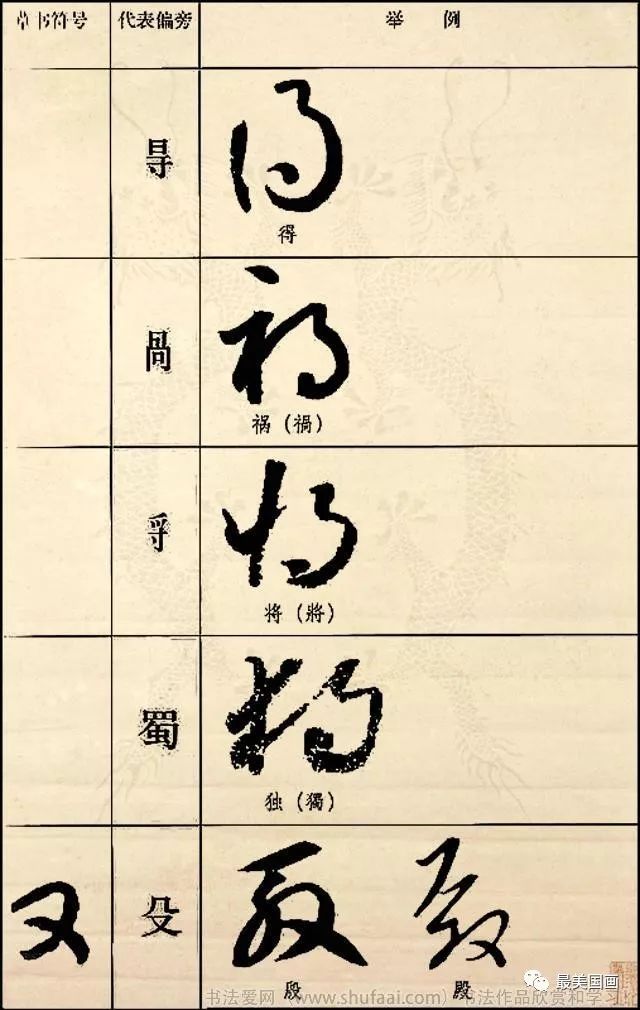 草书符号 代表偏旁 举例
㝵
得
咼
祸（禍）
将（將）
蜀
独（獨）
殳
殷 殿
最美国画
书法爱网（www.shufaai.com）书法作品欣赏和学习